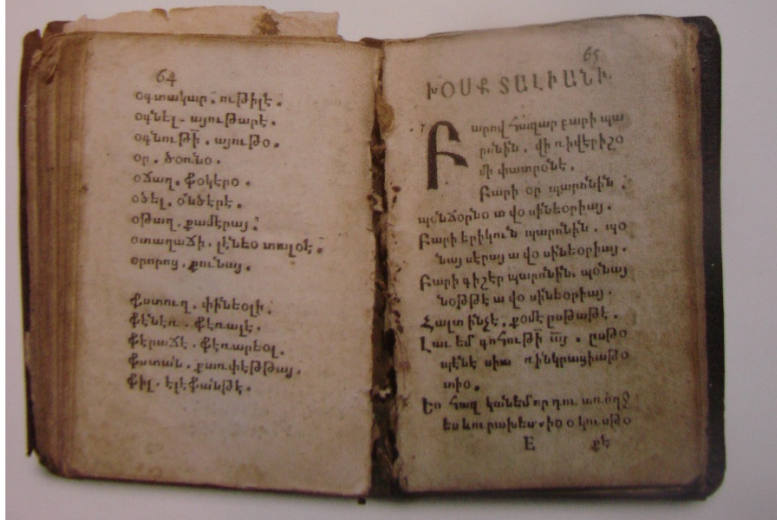 64
օգտակար. ութիլէ.
օգնել. այութարէ.
օգնութի՟. այութօ.
օր. ճօռնօ.
օճառ.
օծել. օնճէրէ.
օթաղ. քամէրայ.
օրորոց. քունայ.
ֆստուղ. փինեօլի.
ֆէնեռ. ֆէռալէ.
ֆէրաճէ. ֆէռարեօլ.
ֆստան.
ֆիլ. ելեֆանթէ.
65
ԽՕՍՔ ՏԱԼԻԱՆԻ.
Բարով հազար բարի պա
րոնին. վի ռիվերիշօ
մի փատրօնէ.
Բարի օր պարոնին.
պօնճօրնօ ա վօ սինեօրիայ.
Բարի երիկուն պարոնին. պօ
նայ սէրայ ա վօ սինեօրիայ.
Բարի գիշեր պարոնին. պօնայ
նօթթէ ա վօ սինեօրիայ.
Հալտ ինչէ. քօմէ ըսթաթէ.
Լաւ եմ գոհութի՟ ա՟յ. ըսթօ
պէնէ սիա ռինկրացիաթօ
տիօ.
Ես հազ կանեմ որ դու առողջ
ես և ուրախ ես. իօ օ կուսթօ
E քէ